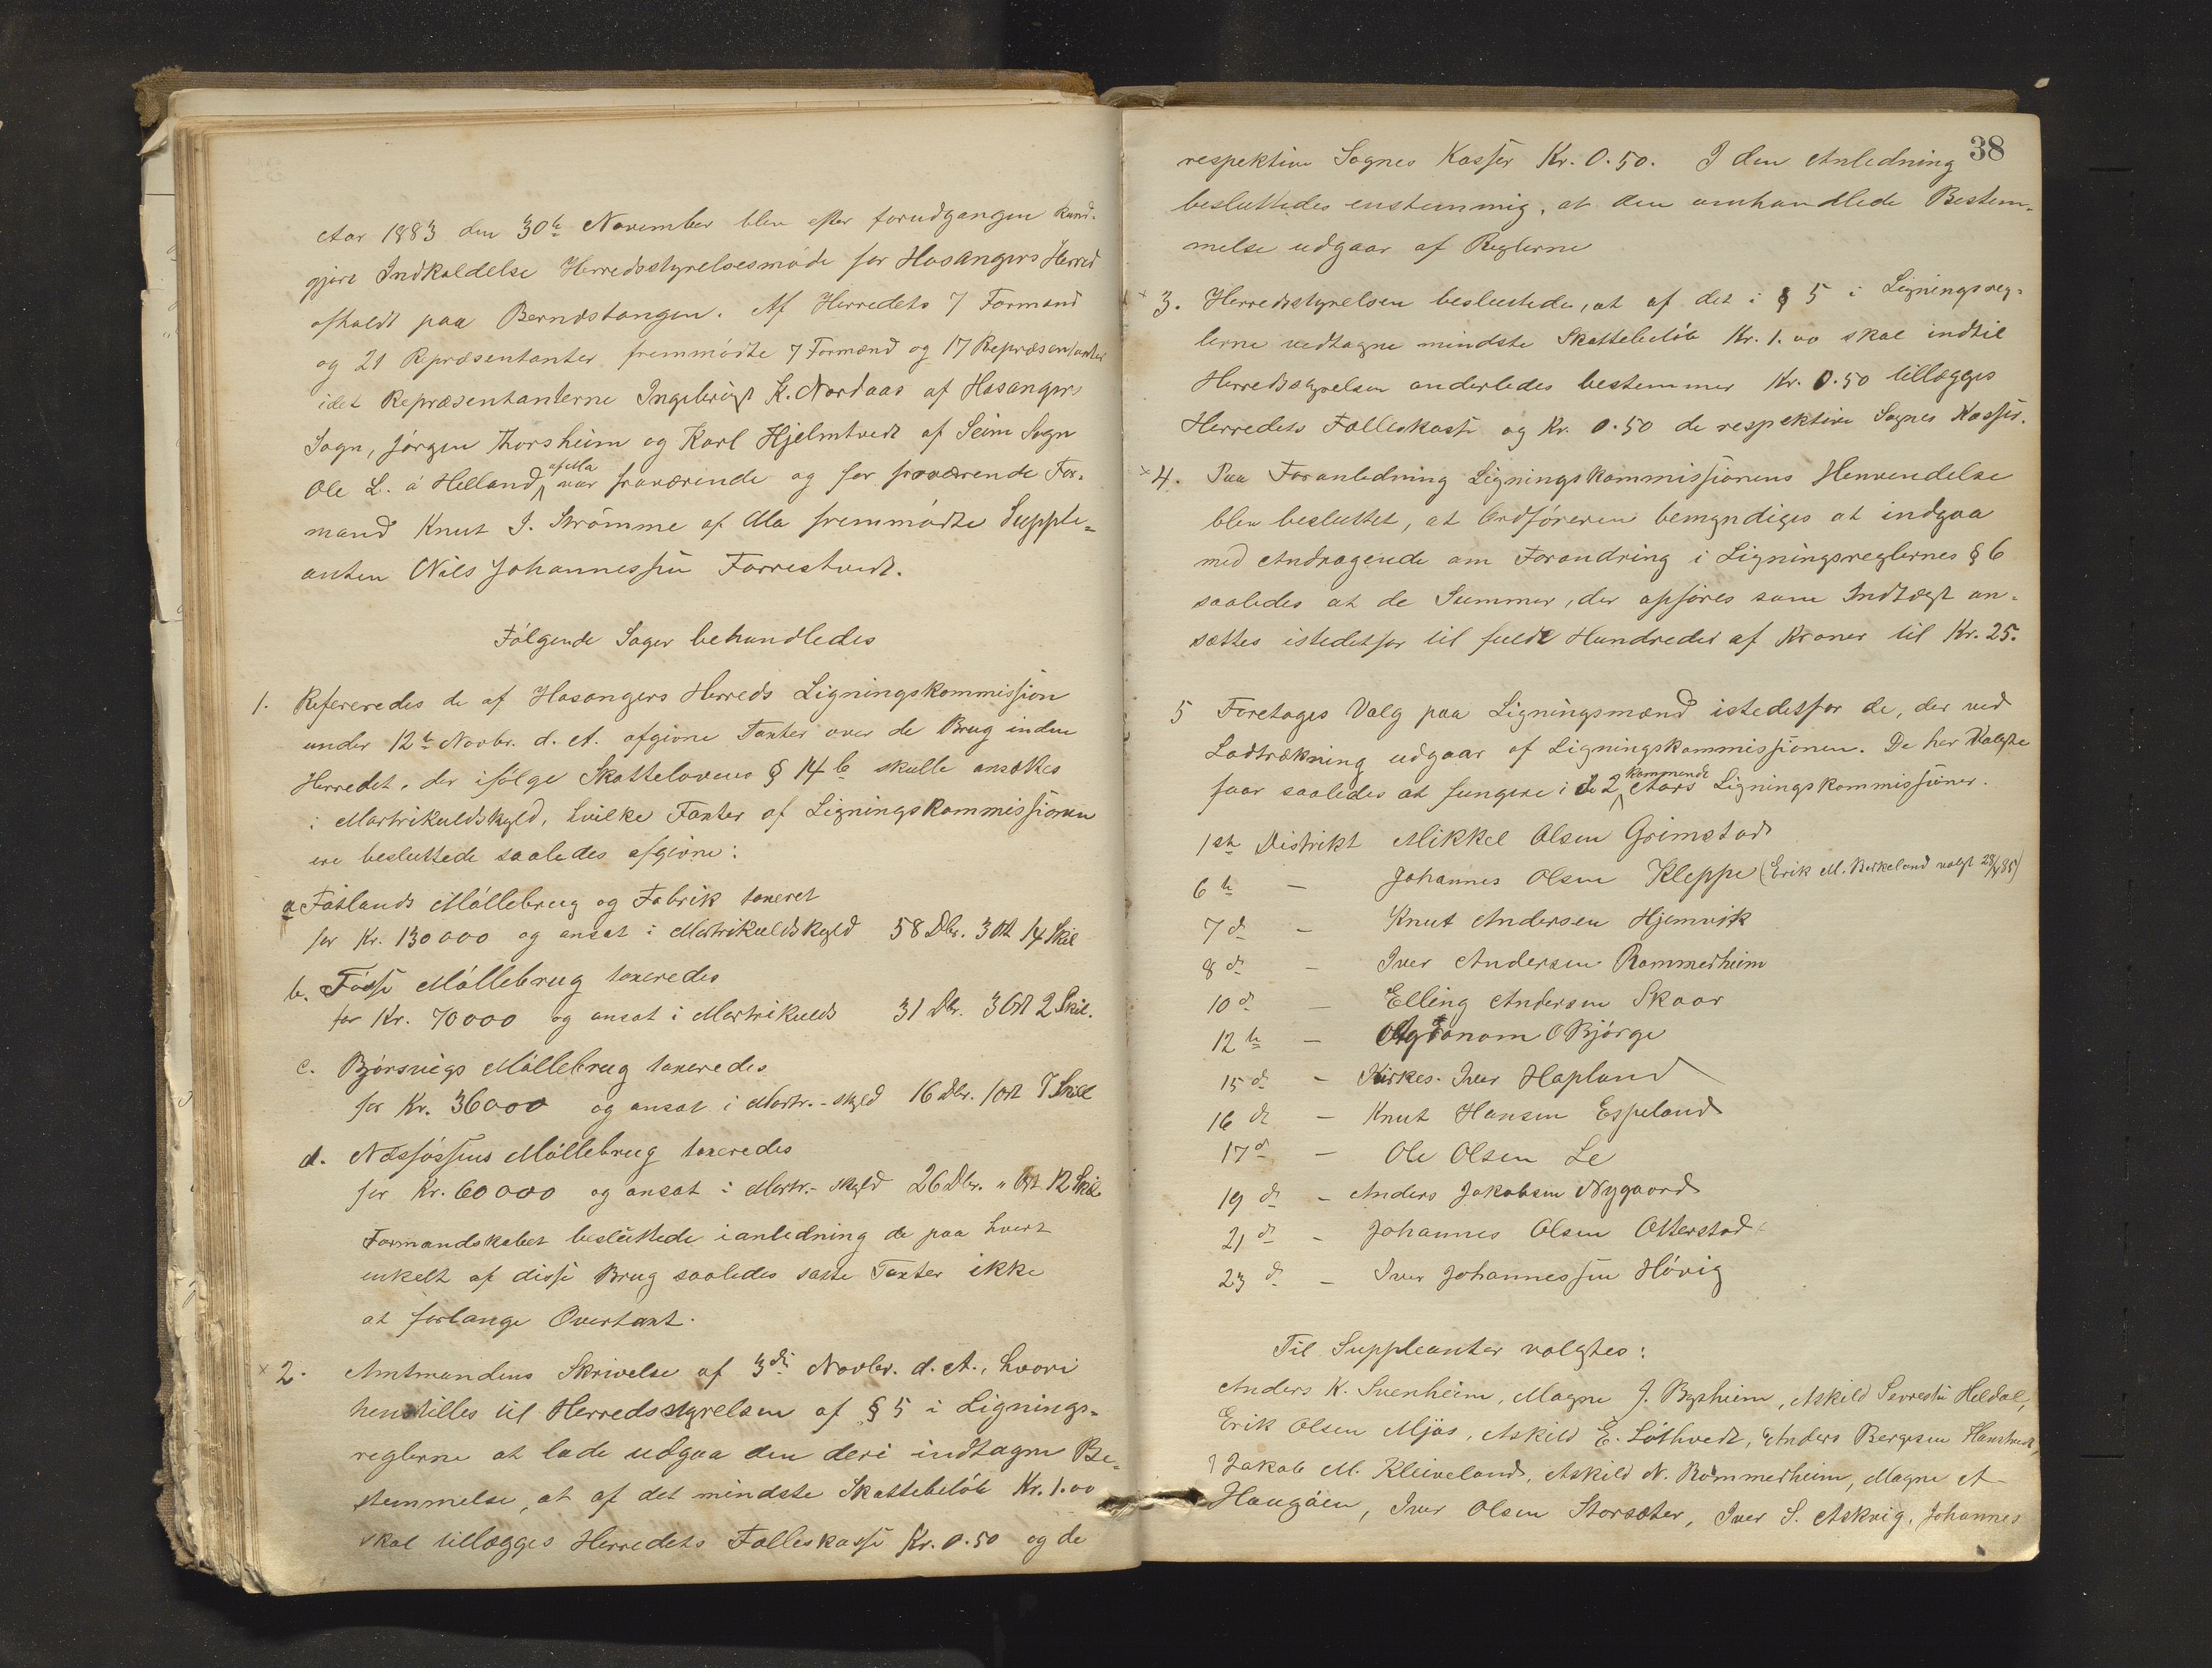 Aar 1883 den 30te November blev efter forudgangen Kund-
gjort Indkaldelse Herredsstyrelsesmøde for Hosangers Herred
afholdt paa Berndstangen. Af Herredets 7 Formænd
og 21 Repræsentanter fremmødte 7 Formænd og 17 Repræsentanter
idet Repræsentanterne Ingebrigt K. Nordaas af Hosangers
Sogn, Jørgen Thorsheim og Karl Hjelmtvedt af Seim Sogn
Ole L. ö Helland af Mo var fraværende og for fraværende For-
mand Knut I. Strømme af Mo fremmødte Supple-
anten Nils Johannessen Forrestvedt.
Følgende Sager behandledes
1. Refereredes de af Hosangers Herreds Ligningskommission
under 12te Novbr. d. A. afgivne Taxter over de Brug inden
Herredet, der ifølge Skattelovens § 14 b skulle ansættes
i Martrikulskyld, hvilke Taxter af Ligningskommissionen
ere besluttede saaledes afgivne:
a. Fotlands Møllebrug og Fabrik taxeret
for Kr. 130000 og ansat i Matrikuldskyld 58 Dlr. 3 Ort 14 Skil
b. Fosse Møllebrug taxeredes
for Kr. 70000 og ansat i Martrikulds 31 Dlr. 3 Ort 2 Skil.
c. Bjørsvigs Møllebrug taxeredes
for Kr. 36000 og ansat i Martr.-skyld 16 Dlr. 1 Ort 7 Skill
d. Næsfossens Møllebrug taxeredes
for Kr. 60000 og ansat i Martr.-skyld 26 Dlr. " Ort 12 Skil
Formandskabet besluttede i anledning de paa hvert
enkelt af disse Brug saaledes satte Taxter ikke
at forlange Overtaxt.
× 2. Amtmandens Skrivelse af 3die Novbr. d. A., hvori
henstilles til Herredsstyrelsen af § 5 i Lignings-
reglerne at lade udgaa den deri indtagne Be-
stemmelse, at af det mindste Skattebeløb Kr. 1.00
skal tillægges Herredets Fælleskasse Kr. 0.50 og de
38
respektive Sognes Kasser Kr. 0.50. I den Anledning
besluttedes enstemmig, at den omhandlede Bestem-
melse udgaar af Reglerne
× 3. Herredsstyrelsen besluttede, at af det i § 5 i Ligningsreg-
lerne vedtagne mindste Skattebeløb Kr. 1.00 skal indtil
Herredsstyrelsen anderledes bestemmer Kr. 0.50 tillægges
Herredets Fælleskasse og Kr. 0.50 de respektive Sognes Kasser.
× 4. Paa Foranledning Ligningskommissionens Henvendelse
blev besluttet, at Ordføreren bemyndiges at indgaa
med Andragende om Forandring i Ligningsreglernes § 6
saaledes at de Summer, der opføres som Indtægt an-
sættes istedetfor til fulde Hundreder af Kroner til Kr. 25.
5 Foretages Valg paa Ligningsmænd istedetfor de, der ved
Lodtrækning udgaar af Ligningskommissionen. De her Valgte
faar saaledes at fungere i de 2 kommende Aars Ligningskommissioner.
1ste Distrikt Mikkel Olsen Grimstad
6te – Johannes Olsen Kleppe (Erik M. Birkeland valgt
7d – Knut Andersen Hjemvik
8d – Iver Andersen Rommerheim
10d – Elling Andersen Skaar
12te – Agronom O Bjørge
15d – Kirkes. Iver Hopland
16d – Knut Hansen Espeland
17d – Ole Olsen Le
19d – Anders Jakobsen Nygaard
21d – Johannes Olsen Otterstad
23d – Iver Johannessen Høvig
Til Suppleanter valgtes:
Anders K. Svenheim, Magne J. Bysheim, Askild Sjursen Heldal,
Erik Olsen Mjøs, Askild E. Løtvedt, Anders Bergesen Hanstvedt,
Jakob M. Kleiveland, Askild N. Rommerheim, Magne A
Haugøen, Iver Olsen Storsæter, Iver S. Askvig, Johannes